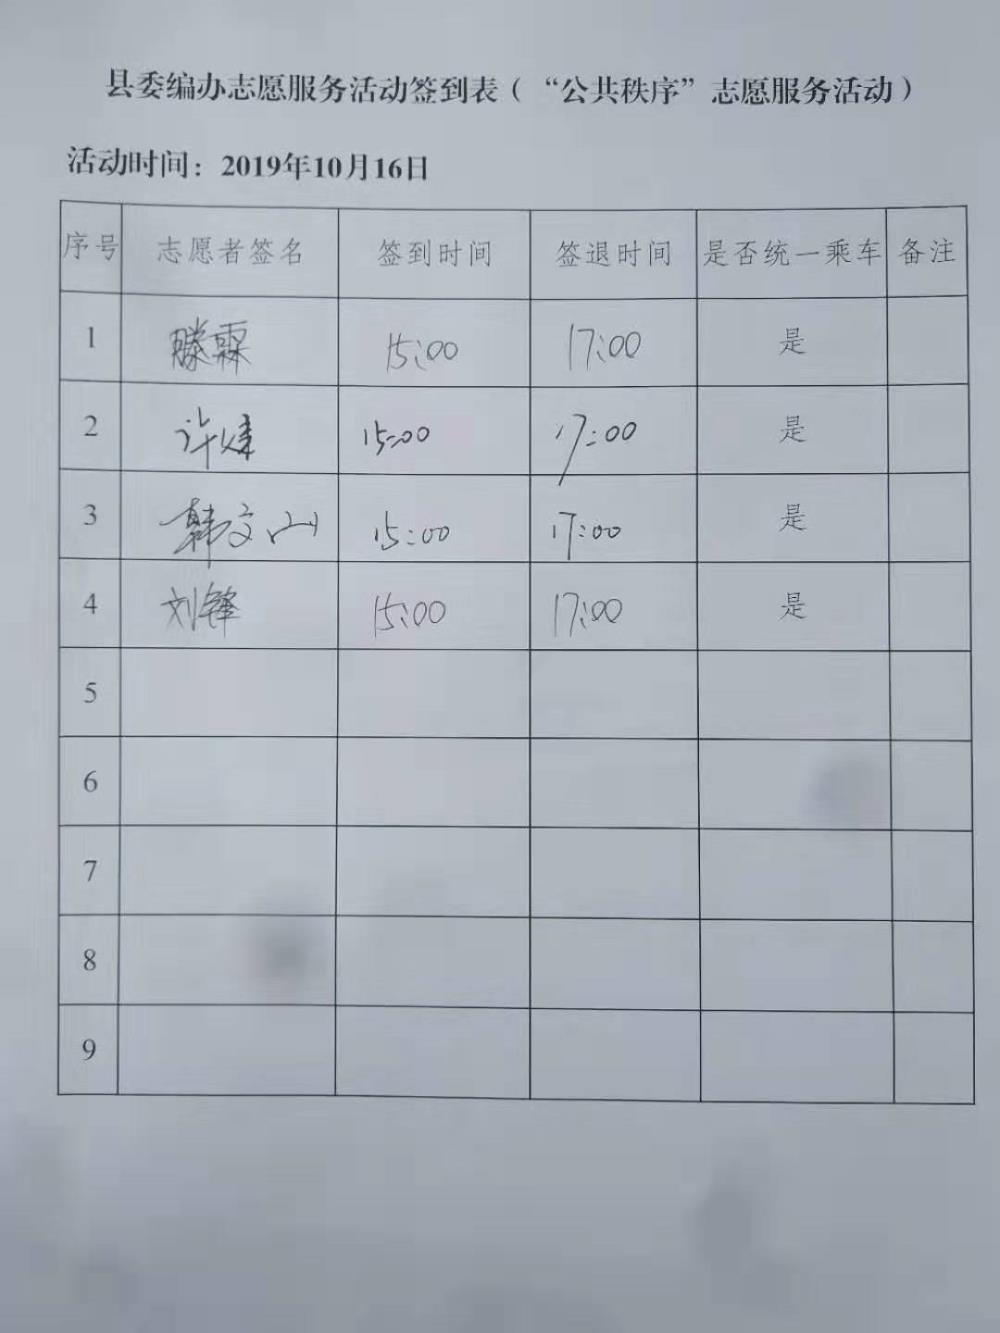 县委编办志愿服务活动签到表（“公共秩序”志愿服务活动）
活动时间：2019年10月16日
序号 志愿者签名 签到时间 签退时间 是否统一乘车 备注
1 滕霖 15:00 17:00 是
2 许婕 15:00 17:00 是
3 韩文山 15:00 17:00 是
4 刘锋 15:00 17:00 是
5
6
7
8
9